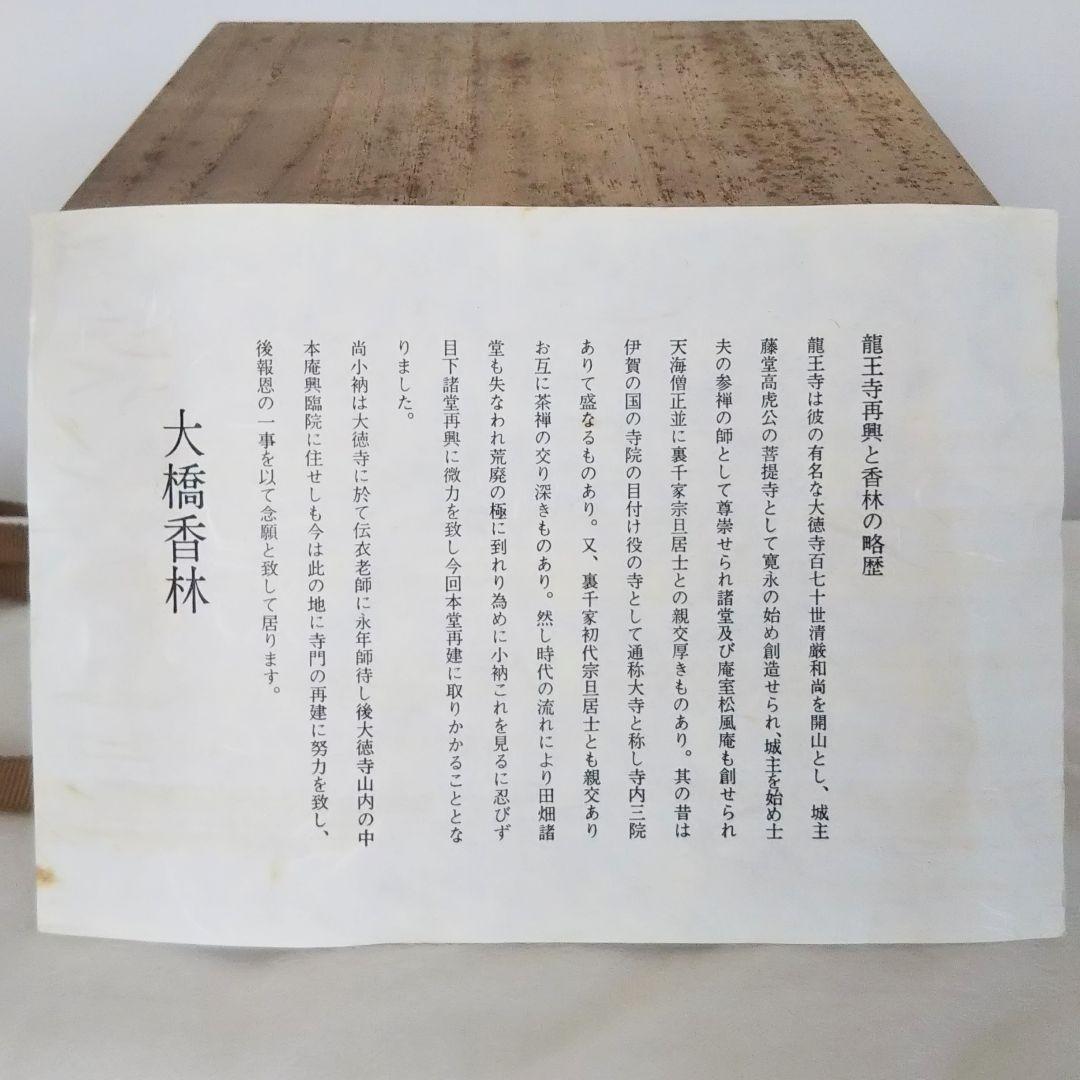 龍王寺再興と香林の略歴
龍王寺は彼の有名な大徳寺百七十世清厳和尚を開山とし、城主
藤堂高虎公の菩提寺として寛永の始め創造せられ、城主を始め士
夫の参禅の師として尊崇せられ諸堂及び庵室松風庵も創せられ
天海僧正並に裏千家宗旦居士との親交厚きものあり。其の昔は
伊賀の国の寺院の目付け役の寺として通称大寺と称し寺内三院
ありて盛なるものあり。又、裏千家初代宗旦居士とも親交あり
お互に茶禅の交り深きものあり。然し時代の流れにより田畑諸
堂も失なわれ荒廃の極に到れり為めに小衲これを見るに忍びず
目下諸堂再興に微力を致し今回本堂再建に取りかかることとな
りました。
尚小衲は大徳寺に於て伝衣老師に永年師待し後大徳寺山内の中
本庵興臨院に住せしも今は此の地に寺門の再建に努力を致し、
後報恩の一事を以て念願と致して居ります。
大橋香林